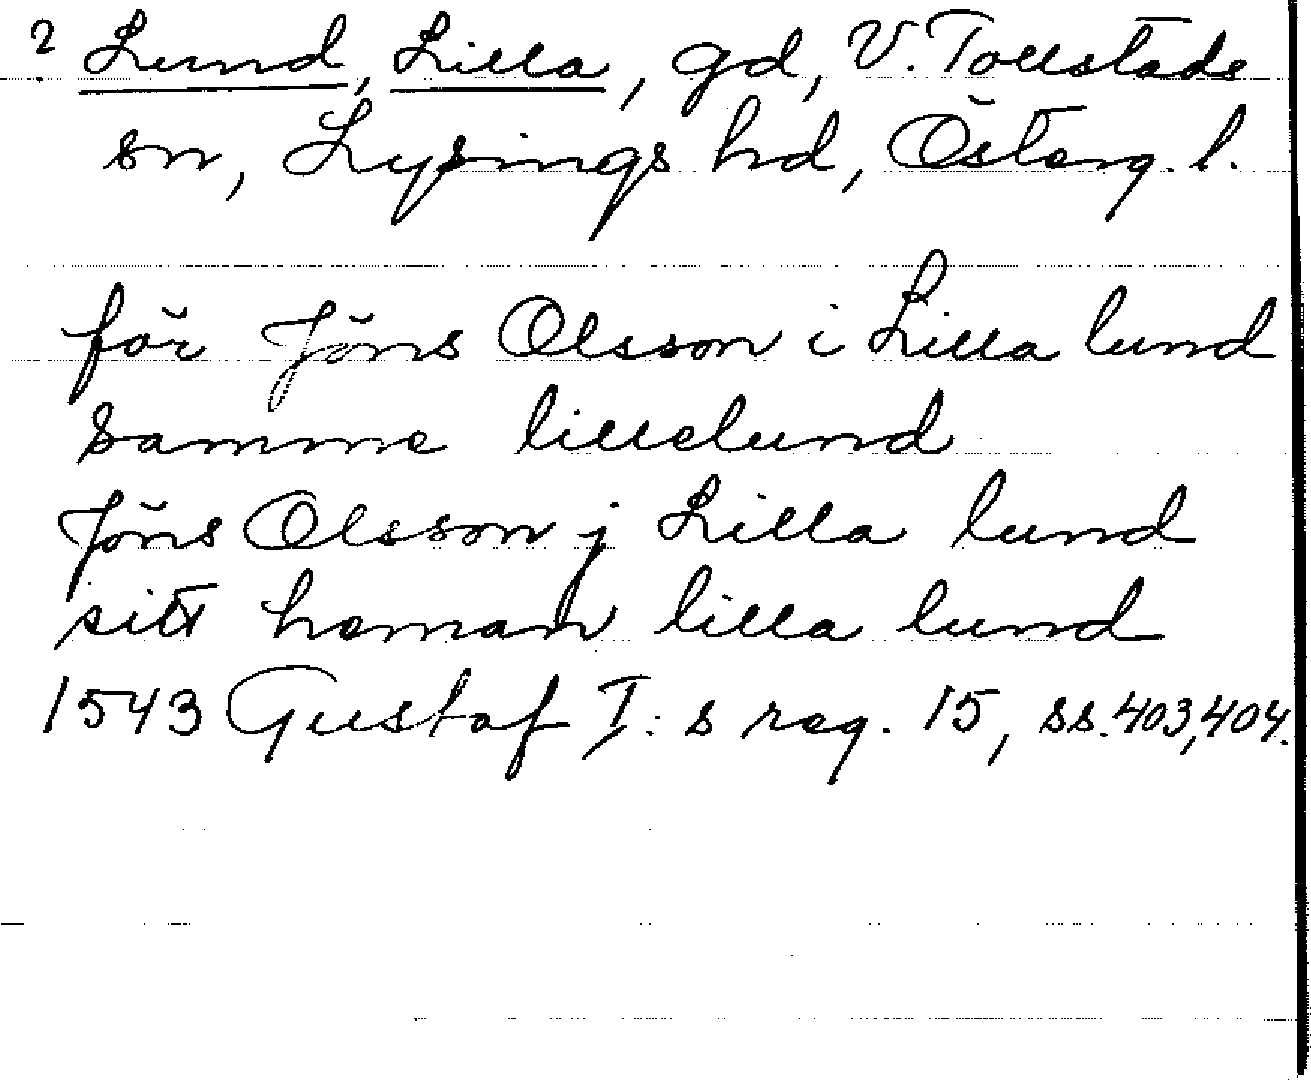 ? Lund, Lilla, gd, V. Tollstads
sn, Lysings hd, Österg. l.
för Jöns Olsson i Lilla lund
samme lillelund
Jöns Olsson j Lilla lund
sitt heman lilla lund
1543 Gustaf I:s reg. 15, ss. 403, 404.